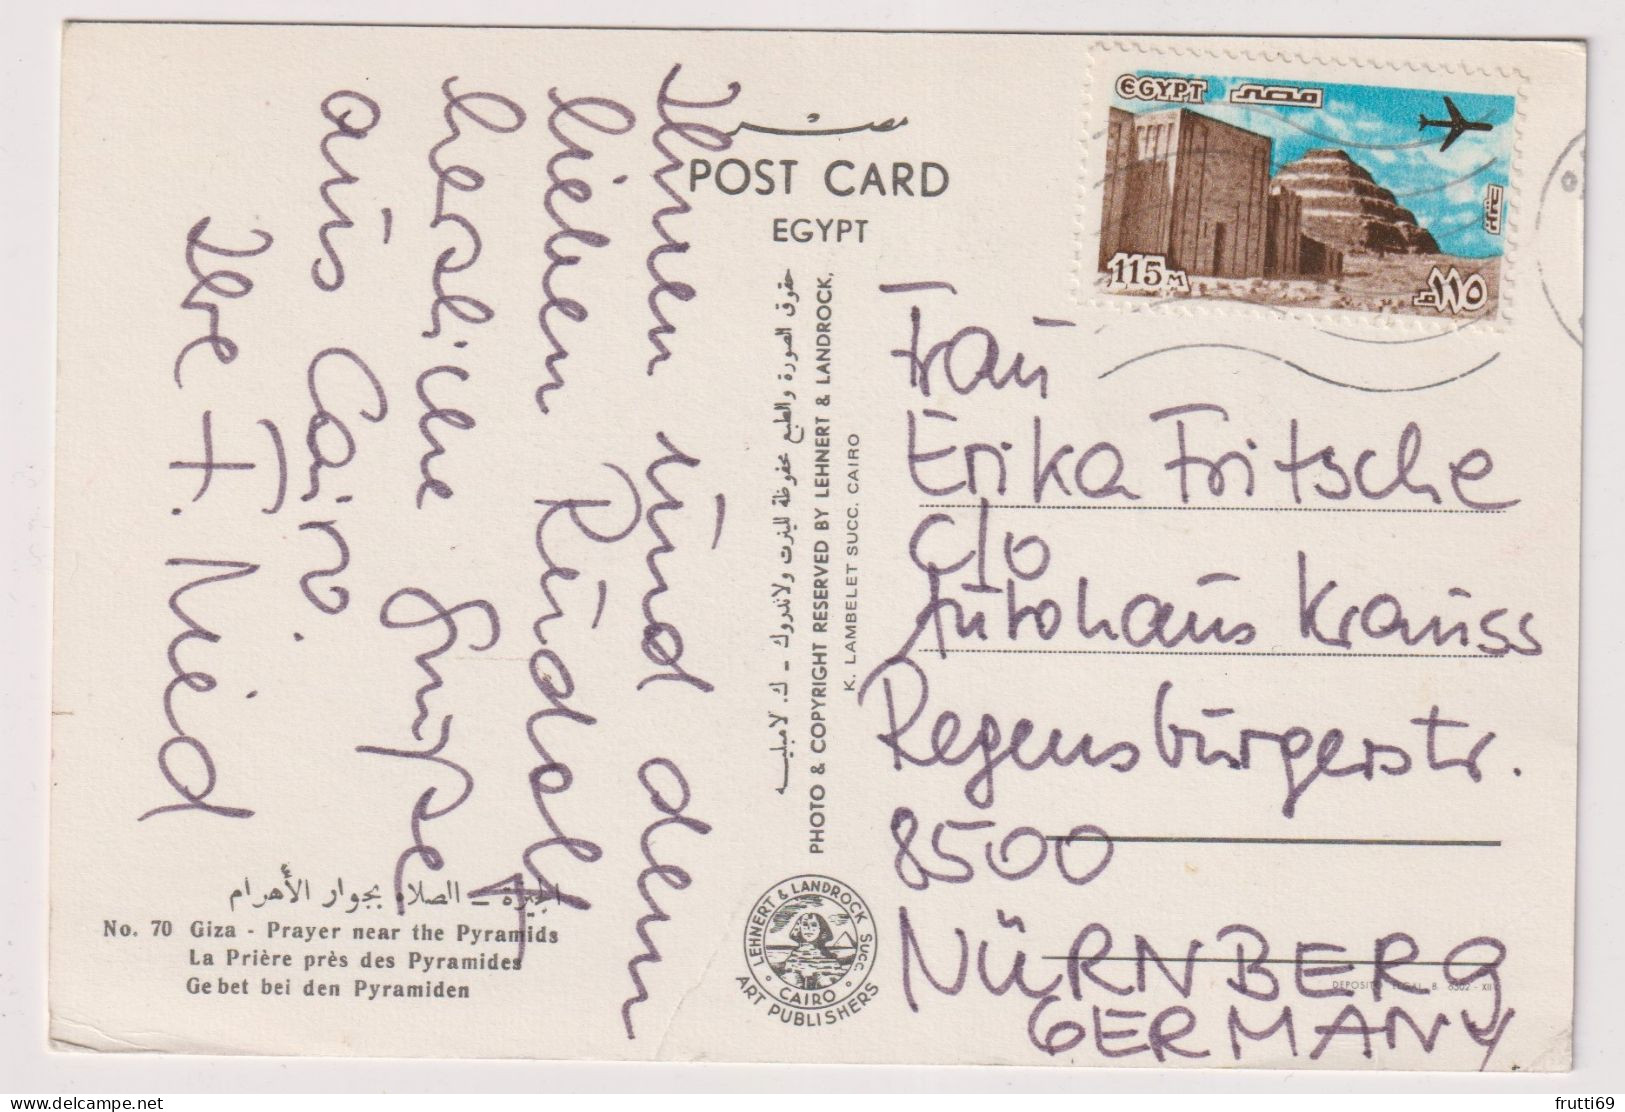 مصر
POST CARD
EGYPT
EGYPT مصر
بريد جوى
115 M
١١٥ م
Ihnen und dem
lieben Rudolf
herzliche Grüsse
aus Cairo.
Ihre F. Nied
حقوق الصورة والطبع محفوظة للينرت ولاندروك - ك. لامبليه
PHOTO & COPYRIGHT RESERVED BY LEHNERT & LANDROCK,
K. LAMBELET SUCC. CAIRO
Frau
Erika Fritsche
c/o
Autohaus Krauss
Regensburgerstr.
8500
NÜRNBERG
GERMANY
الجيزة - الصلاه بجوار الأهرام
No. 70 Giza - Prayer near the Pyramids
La Prière près des Pyramides
Gebet bei den Pyramiden
LEHNERT & LANDROCK SUCC.
CAIRO
ART PUBLISHERS
DEPOSITO LEGAL B. 6302 - XII
delcampe.net
frutti69